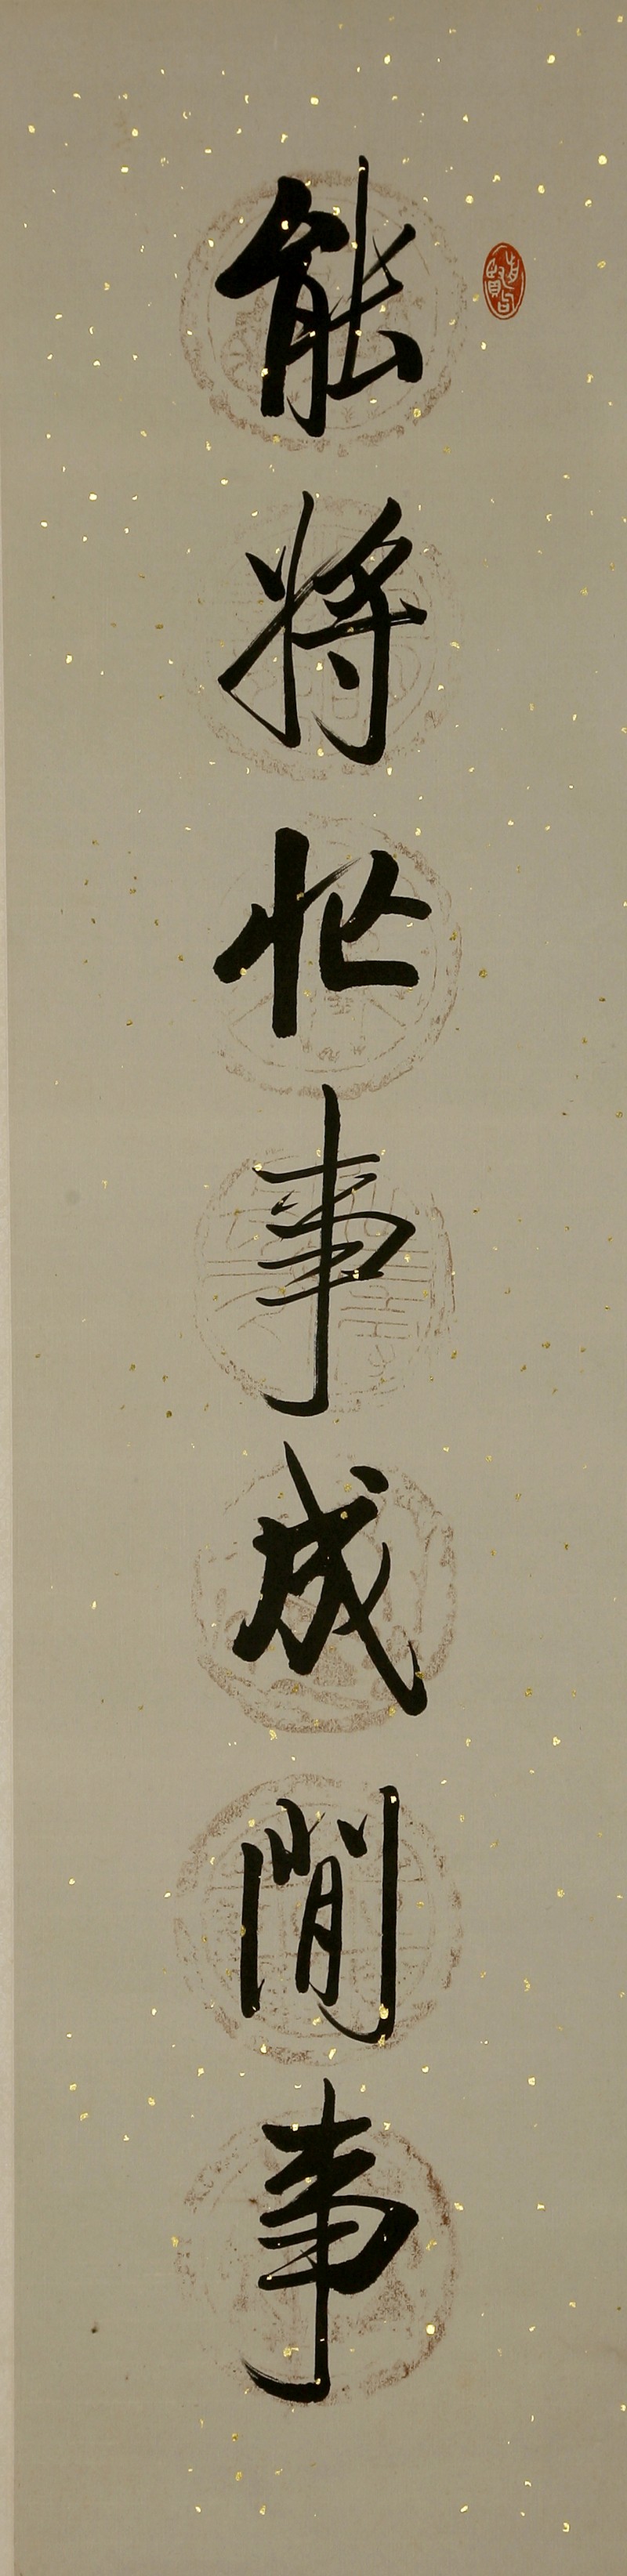 能將忙事成閒事